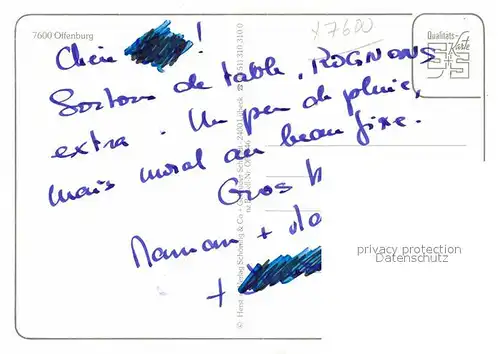 7600 Offenburg
Y7600
Qualitäts-
Karte
Chérie !
Sortons de table, ROGNONS
extra. Un peu de pluie,
mais moral au beau fixe.
Gros
Maman +
+
privacy protection
Datenschutz